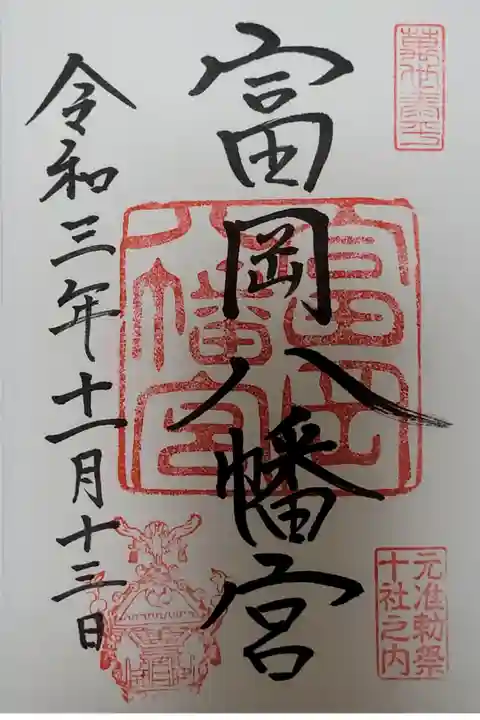 萬世泰平
富岡八幡宮
富岡八幡宮
元准勅祭
十社之内
令和三年十一月十三日